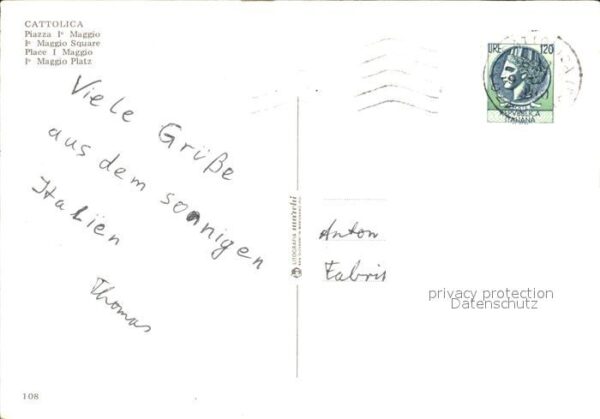 CATTOLICA
Piazza Iº Maggio
Iº Maggio Square
Place I Maggio
Iº Maggio Platz
LIRE 120
REPUBBLICA
ITALIANA
Viele Grüße
aus dem sonnigen
Italien
Thomas
LITOGRAFIA marchi
Anton
Fabris
privacy protection
Datenschutz
108